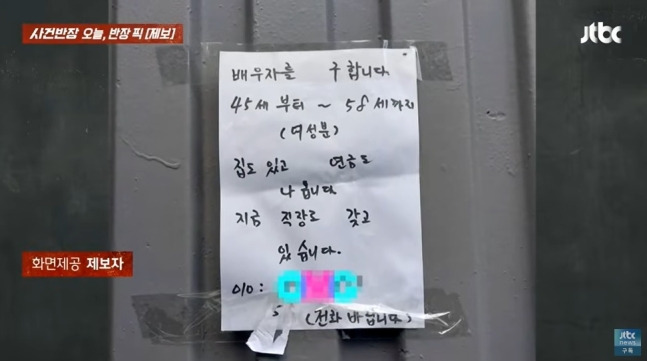 사건반장 오늘, 반장 픽 [제보]
jtbc
배우자를 구합니다.
45세 부터 ~ 58세까지
(여성분)
집도 있고 연금도
나옵니다.
지금 직장도 갖고
있습니다.
010 :
(전화 바랍니다)
화면제공 제보자
jtbc
news
구독